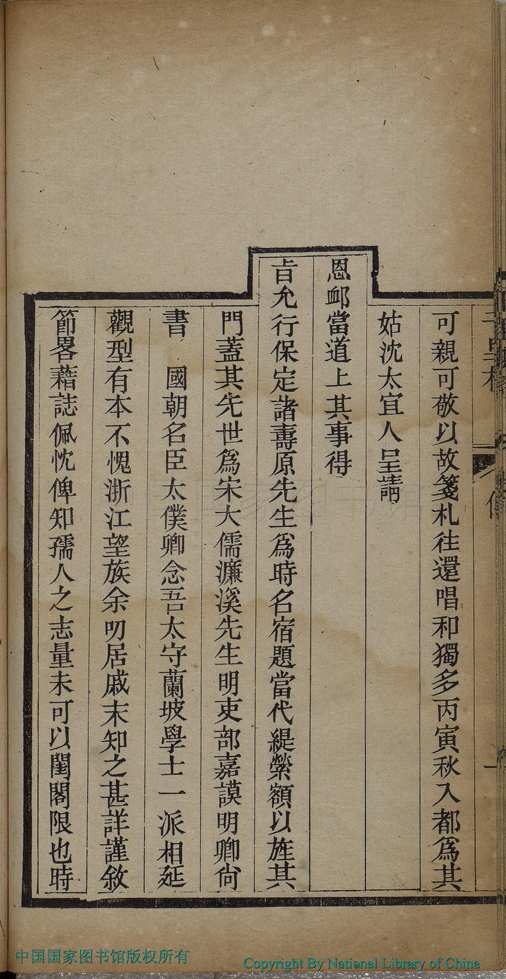 可親可敬以故箋札往還唱和獨多丙寅秋入都爲其
姑沈太宜人呈請
恩卹當道上其事得
旨允行保定諸壽原先生爲時名宿題當代緹縈額以旌其
門蓋其先世爲宋大儒濂溪先生明吏部嘉謨明卿尙
書 國朝名臣太僕卿念吾太守蘭坡學士一派相延
觀型有本不愧浙江望族余叨居戚末知之甚詳謹敘
節畧藉誌佩忱俾知孺人之志量未可以閨閣限也時
中国国家图书馆版权所有
Copyright By National Library of China